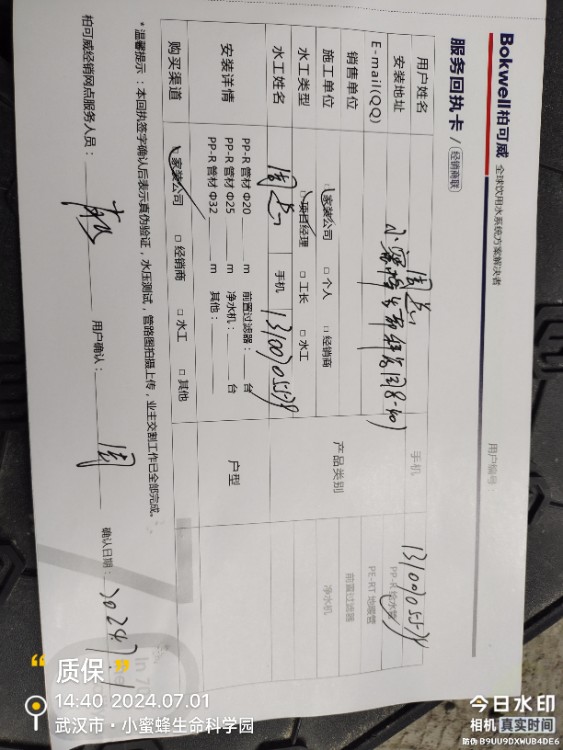 Bokwell柏可威 全球饮用水系统方案解决者
服务回执卡 / 经销商联
用户编号：
用户姓名 周总 手机 13100705579
安装地址 小蜜蜂生命科学园8-401
E-mail(QQ)
销售单位
施工单位 家装公司 □ 个人 □ 经销商
水工类型 项目经理 □ 工长 □ 水工
产品类别
PP-R 给水管
PE-RT 地暖管
前置过滤器
净水机
水工姓名 周总 手机 13100705579
安装详情
PP-R 管材 Φ20 m 前置过滤器： 台
PP-R 管材 Φ25 m 净水机： 台
PP-R 管材 Φ32 m 其他：
户型
购买渠道 家装公司 □ 经销商 □ 水工 □ 其他
*温馨提示：本回执签字确认后表示真伪验证，水压测试，管路图拍摄上传，业主交割工作已全部完成。
柏可威经销网点服务人员： 用户确认： 周 确认日期： 2024.7.1
质保
14:40 2024.07.01
武汉市·小蜜蜂生命科学园
今日水印
相机 真实时间
防伪 B9UU9DXWUB4DE6